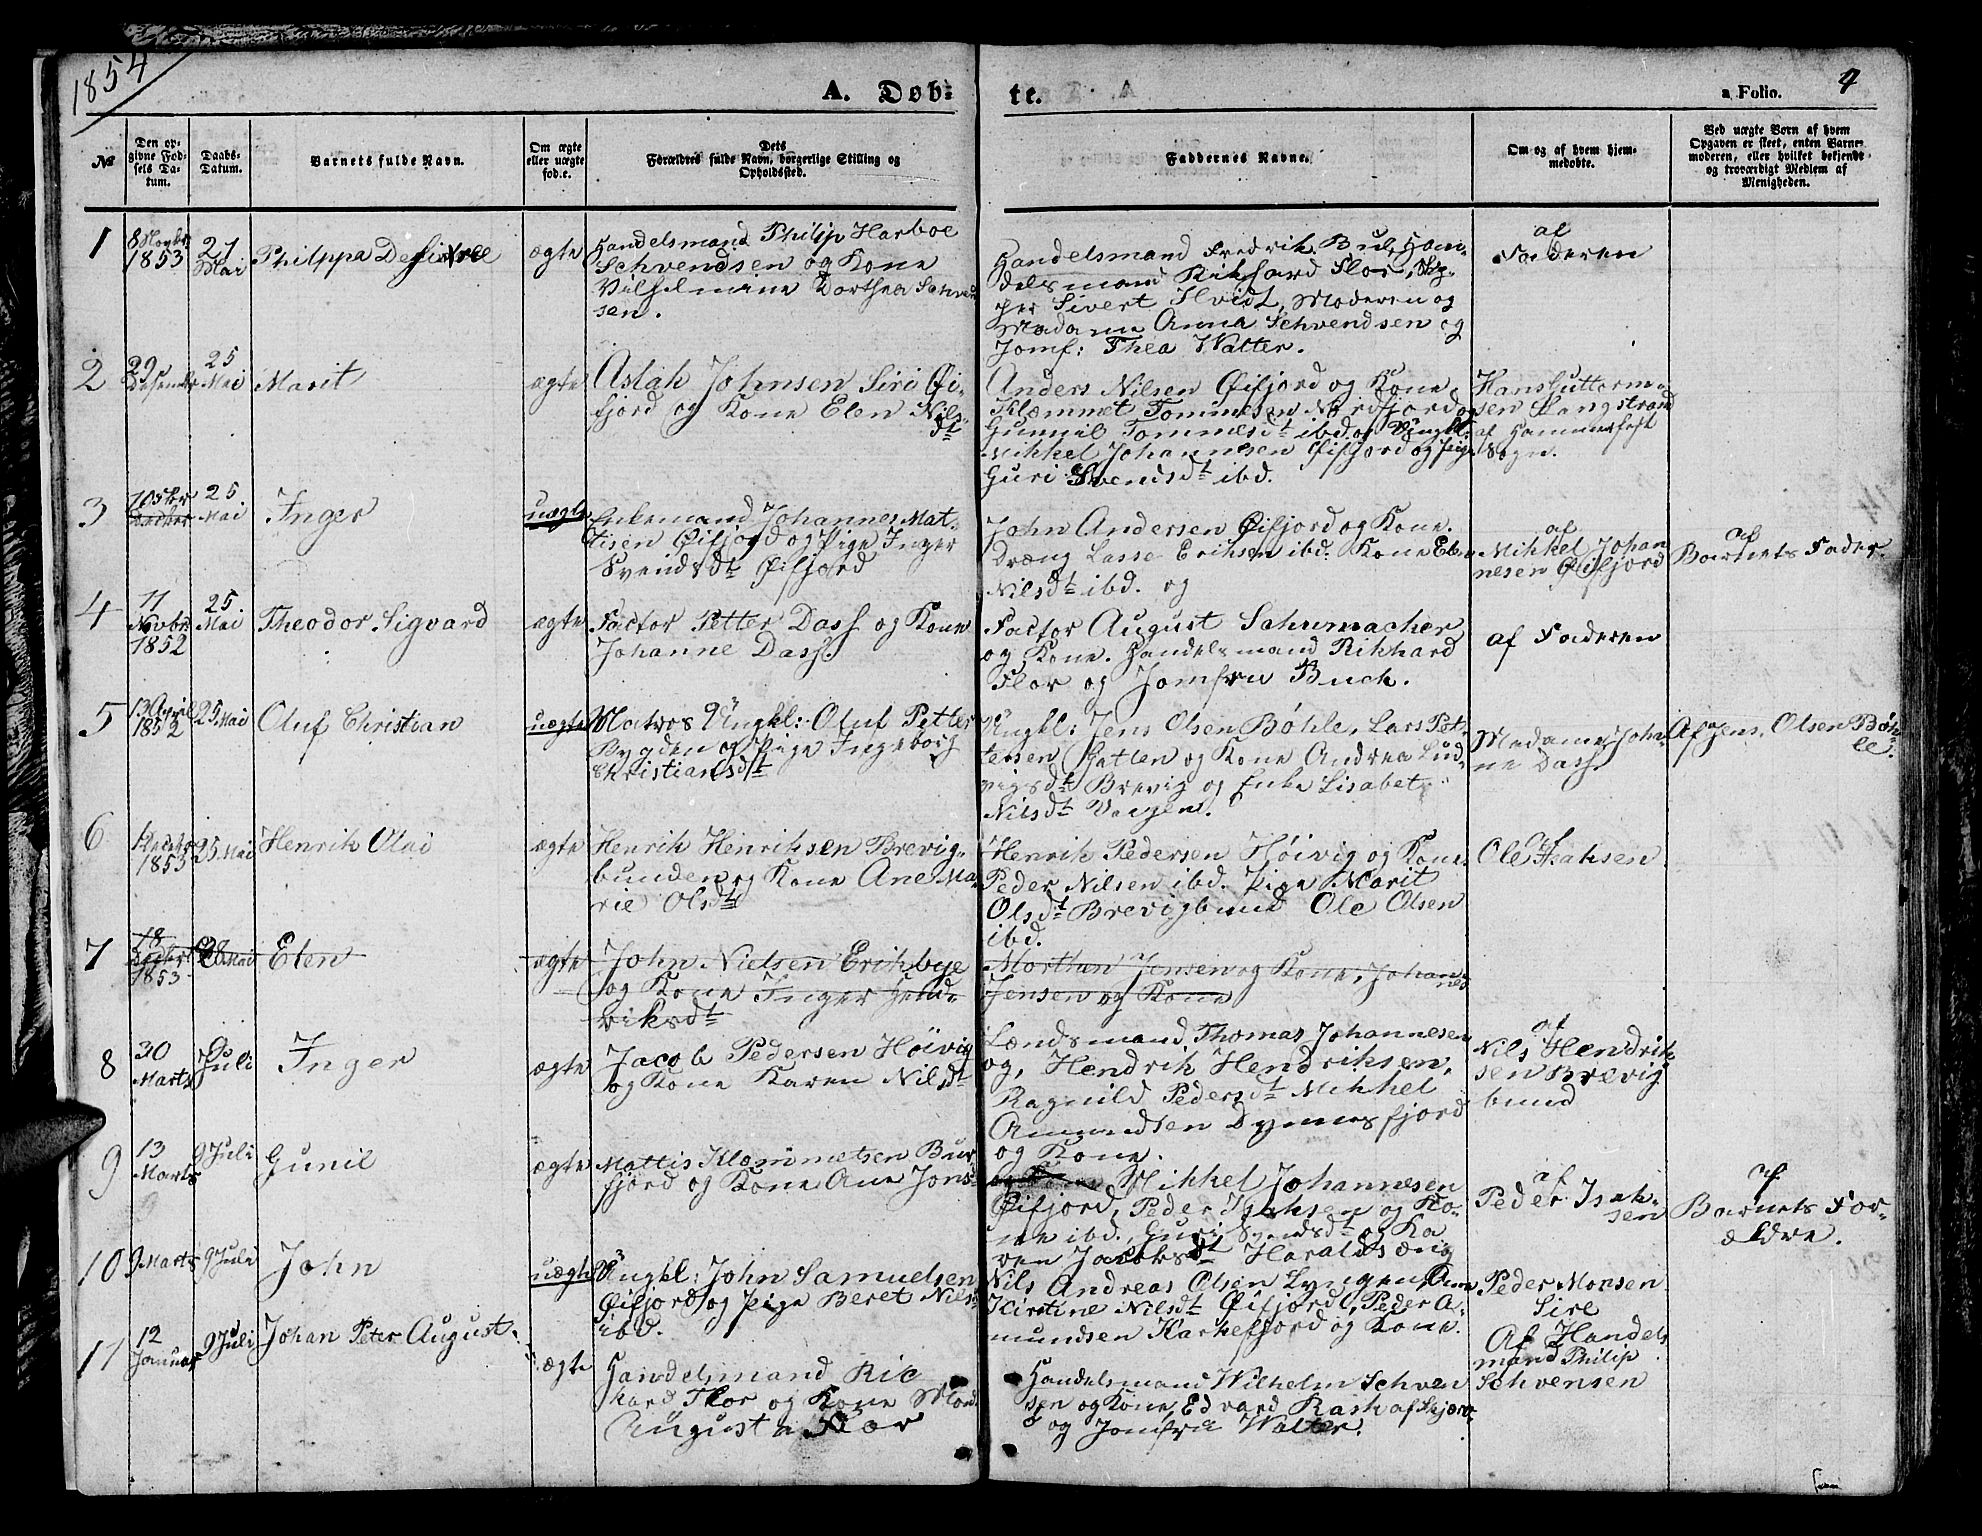 1854
A. Døb-
te.
a Folio. 4
No
Den op-
givne Fød-
sels Da-
tum.
Daabs-
Datum.
Barnets fulde Navn.
Om ægte
eller uægte
fød.e.
Dets
Forældres fulde Navn, borgerlige Stilling og
Opholdssted.
Faddernes Navne.
Om og af hvem hjem-
medøbte.
Ved uægte Børn af hvem
Opgaven er skeet, enten Barne-
moderen, eller hvilket bekjendt
og troværdigt Medlem af
Menigheden.
1
8 Novbr
1853
21
Mai
Philppa Desiree
ægte
Handelsmand Philip Harboe
Schvendsen og Kone
Vilhelmine Dorthea Schvend
sen.
Handelsmand Fredrik Bul, Han-
delsmand Rikhard Flor, Skip-
per Sivert Hvidt, Moderen og
Madame Anna Schvendsen og
Jomf: Thea Walter.
af
Faderen
2
29
Desember
25
Mai
Marit
ægte
Aslak Johnsen Siri Øi-
fjord og Kone Elen Nils-
dt
Anders Nilsen Øifjord og Kone,
Klemmet Tommesen Nordfjord og
Gunnil Tommesdt ibd. og Ungkl:
Mikkel Johannsen Øifjord og Pige
Guri Svendsdt ibd.
Hans Guttorm-
sen Langstrand
af Hammerfest
Sogn.
3
10 Sbr
25
Mai
Inger
uægte
Enkemand Johannes Mat-
tisen Øifjord og Pige Inger
Svendsdt Øifjord
John Andersen Øifjord og Kone.
Dræng Lasse Eriksen ibd. Kone Elen
Nilsdt ibd. og
af
Mikkel Johan
nesen Øifjord
af
Barnets Fader.
4
11
Novbr
1852
25.
Mai
Theodor Sigvard
ægte
Factor Petter Dass og Kone
Johanne Dass.
Factor August Schumacher
og Kone. Handelsmand Rikhard
Flor og Jomfru Buck.
af Faderen
5
13 April
1852
25 Mai
Oluf Christian
uægte
Matros Ungkl: Oluf Petter
Bygden og Pige Ingeborg
Christiansdt
Ungkl: Jens Olsen Bøhle, Lars Pet-
tersen Hatten og Kone Andrea Lud-
vigsdt Brevig og Enke Lisabet
Nilsdt
Madame Johan-
ne Dass
Af Jens Olsen Bøh-
le.
6
1853
25 Mai
Henrik Olai
ægte
Henrik Hinriksen Brevig-
bunden og Kone Ane Ma-
rie Olsdt
Henrik Pedersen Høivig og Kone
Peder Nilsen ibd. Pige Marit
Olsdt Brevigbund Ole Olsen
ibd.
af
Ole Isaksen
7
18
1853
28 Mai
Elen
ægte
John Nielsen Erikbye
og Kone Inger Hend-
riksdt
Morthen Jensen og Kone, Johannes
Jensen og Kone
8
30
Marts
9
Juli
Inger
ægte
Jacob Pedersen Höivig
og Kone Karen Nilsdt
Lændsmand Thomas Johannesen
og, Hendrik Hendriksen,
Ragnild Pedersdt Mikkel
Amundsen Dynnesfjord
og Kone.
af
Nils Hendrik-
sen Brevig
bund
9
13
Marts
9 Juli
Gunil
ægte
Mattis Klemmetsen Bur-
fjord og Kone Ane Jons-
Mikkel Johannesen
Øifjord, Peder Isaksen og Ko-
ne ibd., Guri Svendsdt og Ka
ren Jacobsdt Haraldsæng
af
Peder Isak-
sen
af
Barnets For-
ældre.
10
9 Marts
9 Juli
John
uægte
Ungkl: John Samuelsen
Øifjord og Pige Beret Nils-
ibd.
Nils Andreas Olsen Lyngen, Ane
Kirstine Nilsdt Øifjord, Peder A-
mundsen Karkefjord og Kone.
Peder Monsen
Sire
11
12
Januar
9 Juli
Johan Peter August
ægte
Handelsmand Ric
hard Flor og Kone Mad.
Augusta Flor
Handelsmand Wilhelm Schven
sen og Kone, Edvard Rash af Skjerv
og Jomfru Walter.
Af Handels
mand Philip
Schvensen